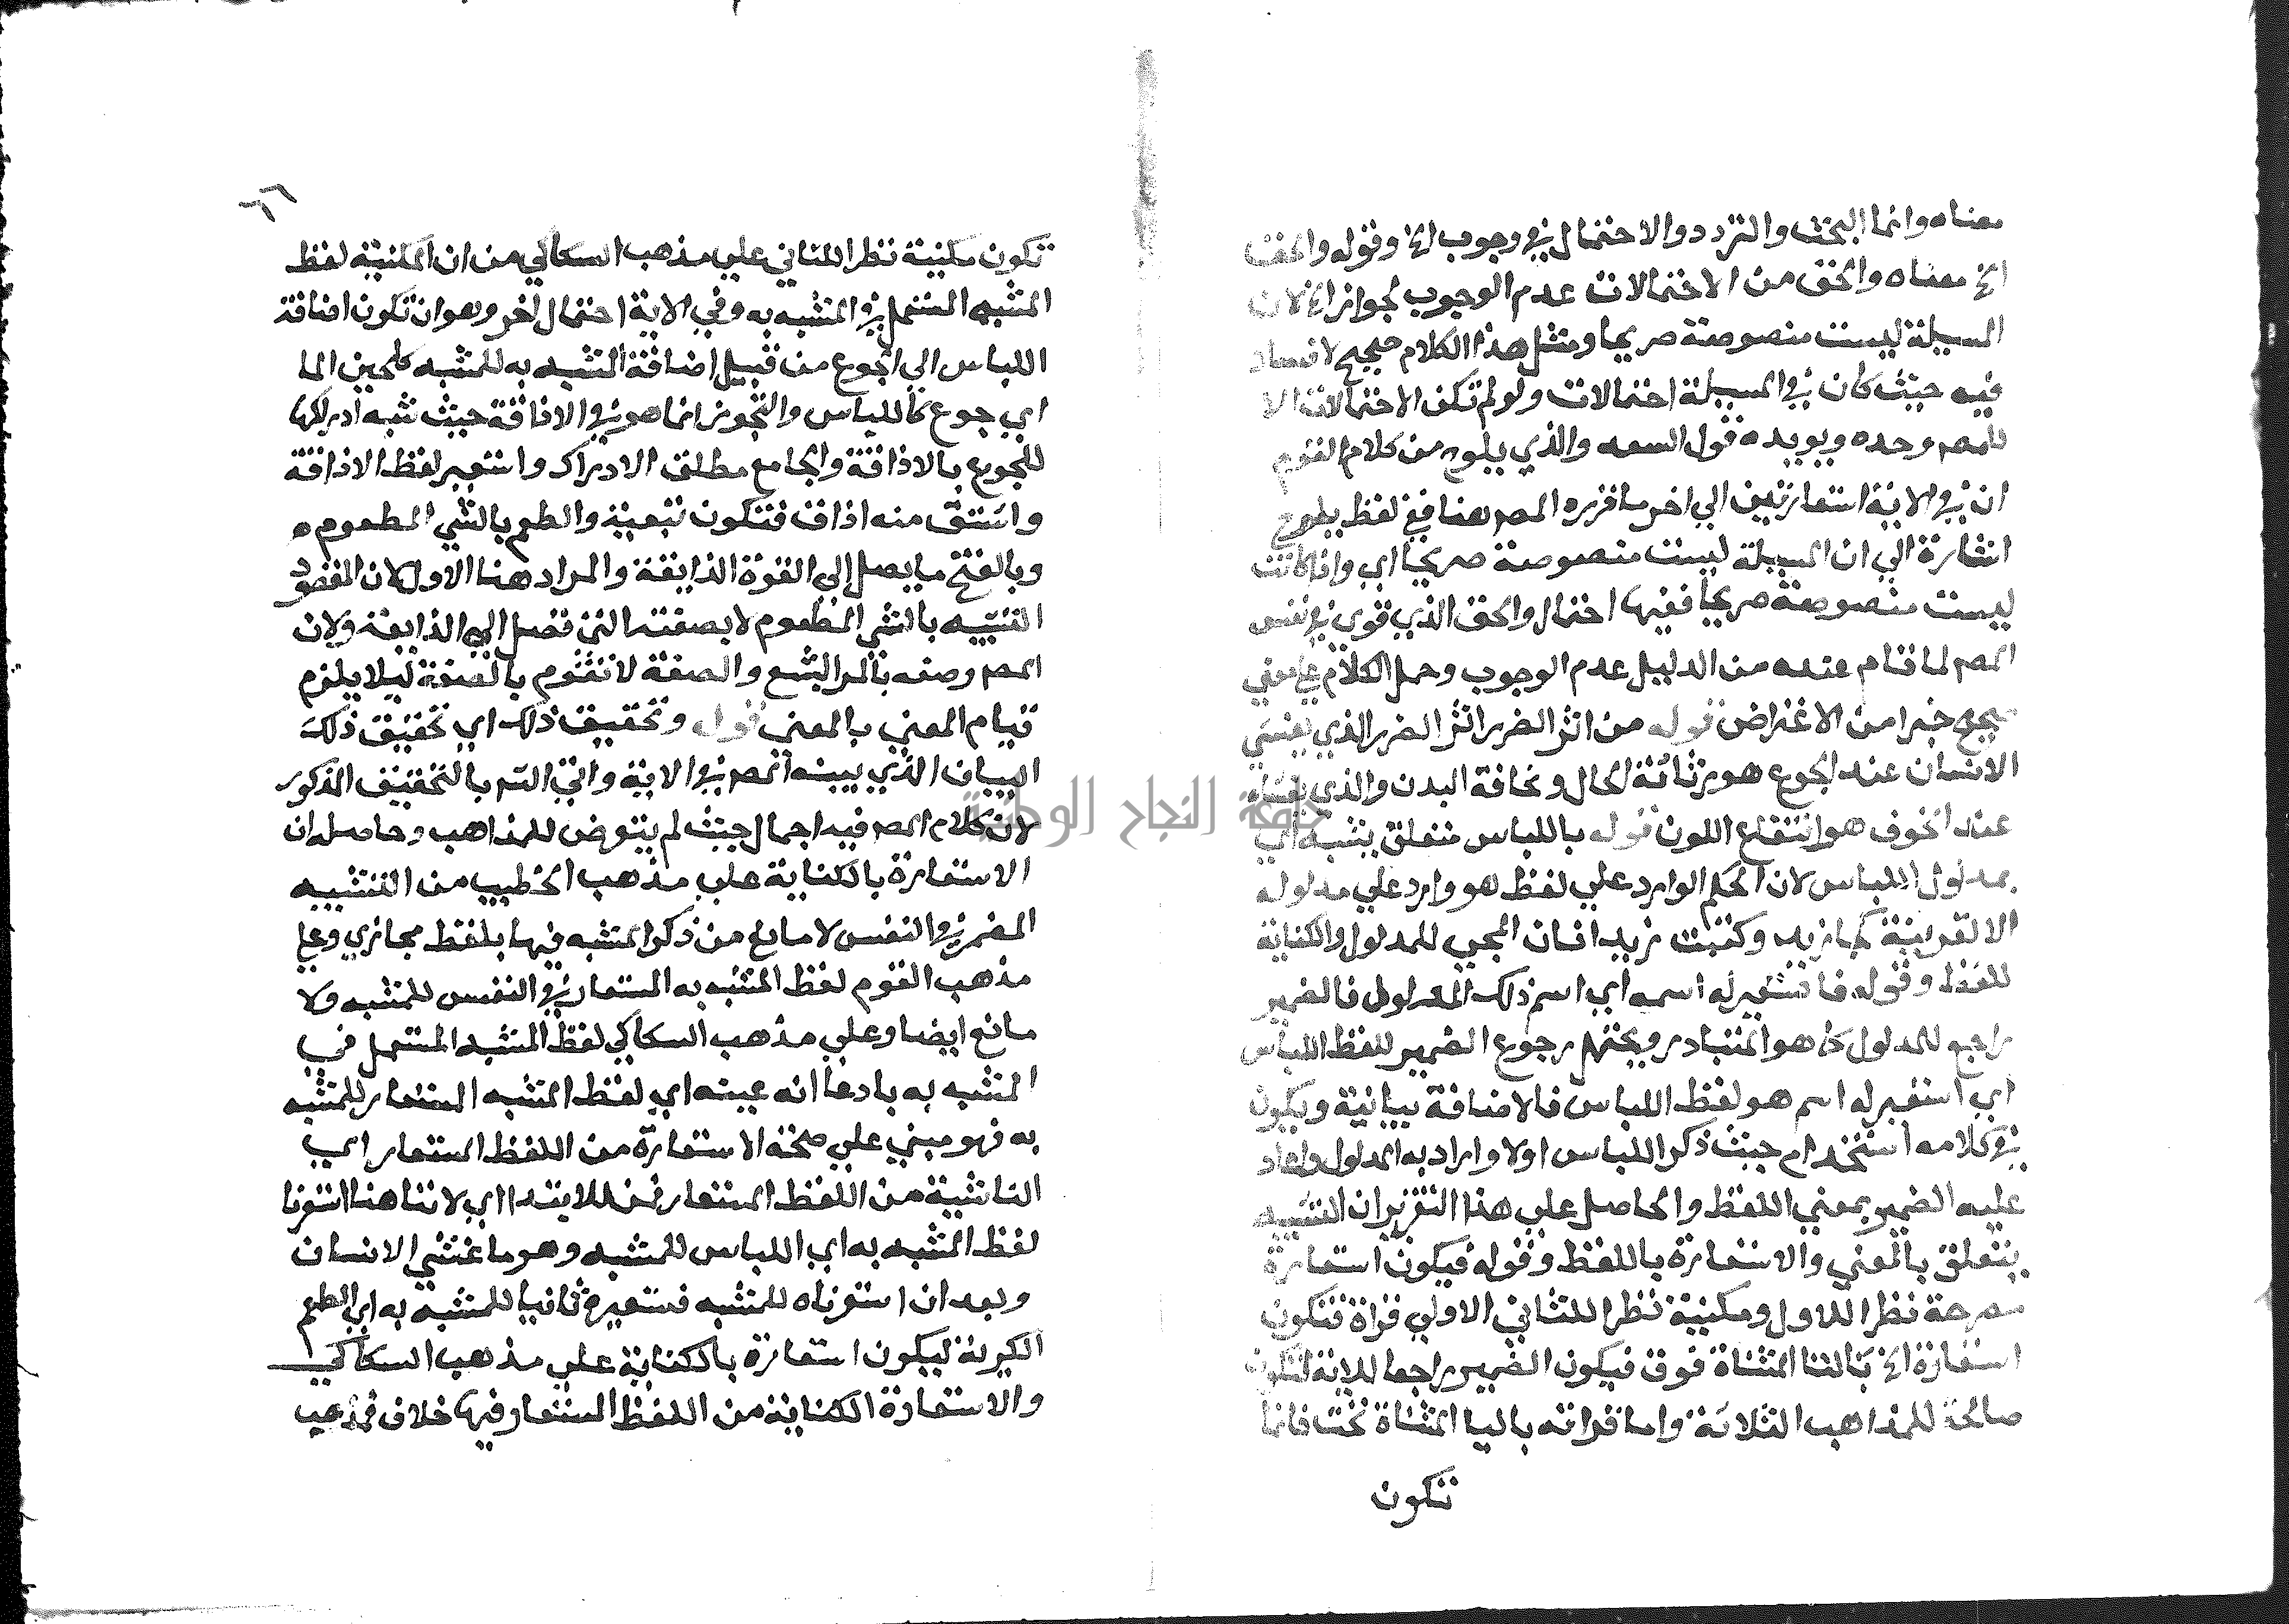 معناه وانما البحث والتردد والاحتمال في وجوب الخ وقوله والحق
الخ معناه والحق من الاحتمالات عدم الوجوب لجواز الخ لان
المسيلة ليست منصوصة صريحا ومثل هذا الكلام صحيح لا فساد
فيه حيث كان في المسيلة احتمالات ولو لم تكن الاحتمالات الا
للمصم وحده ويويده قول السعد والذي يلوح من كلام القوم
ان في الاية استعارتين الي اخر ما قرره المصم هنا ففي لفظ يلوح
اشارة الي ان المسيلة ليست منصوصة صريحا اي واذا كانت
ليست منصوصة صريحا ففيها احتمال والحق الذي قوي في نفس
المصم لما قام عنده من الدليل عدم الوجوب وحمل الكلام علي معني
صحيح خير من الاعتراض قوله من اثر الضرر اثر الضرر الذي يغشي
الانسان عند الجوع هو رثاثة الحال ونحافة البدن والذي يغشاه
عند الخوف هو انتقاع اللون قوله باللباس متعلق بشبه اي
بمدلول اللباس لان الحكم الوارد علي لفظ هو وارد علي مدلوله
الا لقرينة كجا زيد وكتبت زيدا فان المجي للمدلول والكتابة
للفظ وقوله فاستعير له اسمه اي اسم ذلك المدلول فالضمير
راجع للمدلول كما هو المتبادر ويحتمل رجوع الضمير للفظ اللباس
اي استعير له اسم هو لفظ اللباس فالاضافة بيانية ويكون
في كلامه استخدام حيث ذكر اللباس اولا واراد به المدلول واعاد
عليه الضمير بمعني اللفظ والحاصل علي هذا التقرير ان التشبيه
يتعلق بالمعني والاستعارة باللفظ وقوله فيكون استعارة
مصرحة نظرا للاول ومكنية نظرا للثاني الاولي قراة فتكون
استعارة الخ بالتا المثناة فوق فيكون الضمير راجعا للاية لتكون
صالحة للمذاهب الثلاثة واما قراته باليا المثناة تحت فانما
تتكون
٦٦
تكون مكنية نظرا للثاني علي مذهب السكاكي من ان المكنية لفظ
المشبه المستعمل في المشبه به وفي الاية احتمال اخر وهو ان تكون اضافة
اللباس الي الجوع من قبيل اضافة المشبه به للمشبه كلجين الما
اي جوع كاللباس والتجوز انما هو في الاذاقة حيث شبه ادراكها
للجوع بالاذاقة والجامع مطلق الادراك واستعير لفظ الاذاقة
واشتق منه اذاق فتكون تبعية والطعم بالشي المطعوم ه
وبالفتح ما يصل إلي القوة الذايقة والمراد هنا الاول لان المقصود
التشبيه بالشي المطعوم لا بصفته التي تصل الي الذايقة ولان
المصم وصفه بالمر البشع والصفة لا تقوم بالصفة ليلا يلزم
قيام المعني بالمعني قوله وتحقيق ذلك اي تحقيق ذلك
البيان الذي بينه المصم في الاية واتي الشم بالتحقيق المذكور
لان كلام المصم فيه اجمال حيث لم يتعرض للمذاهب وحاصله ان
الاستعارة بالكناية علي مذهب الخطيب من التشبيه
المضمر في النفس لا مانع من ذكر المشبه فيها بلفظ مجازي وعلي
مذهب القوم لفظ المشبه به المستعار في النفس للمشبه ولا
مانع ايضا وعلي مذهب السكاكي لفظ المشبه المستعمل في
المشبه به بادعا انه عينه اي لفظ المشبه المستعار للمشبه
به فهو مبني علي صحة الاستعارة من اللفظ المستعار اي
الناشية من اللفظ المستعار فمن للابتدا اي لاننا هنا استعرنا
لفظ المشبه به اي اللباس للمشبه وهو ما غشي الانسان
وبعد ان استعرناه للمشبه نستعيره ثانيا للمشبه به اي الطعم
الكريه ليكون استعارة بالكناية علي مذهب السكاكي
والاستعارة الكناية من اللفظ المستعار فيها خلاف فمذهب